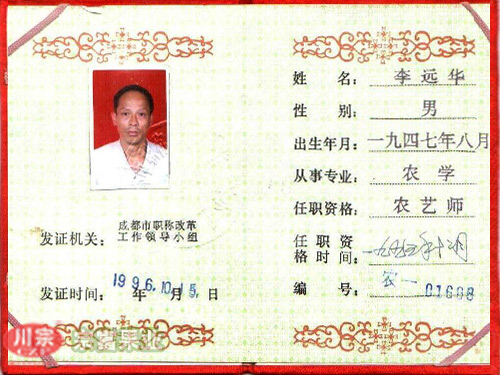 姓 名: 李远华
性 别: 男
出生年月: 一九四七年八月
从事专业: 农学
任职资格: 农艺师
任职资
格时间:
编 号: 农一 01688
发证机关: 成都市职称改革
工作领导小组
发证时间: 1996年10月15日
川宗